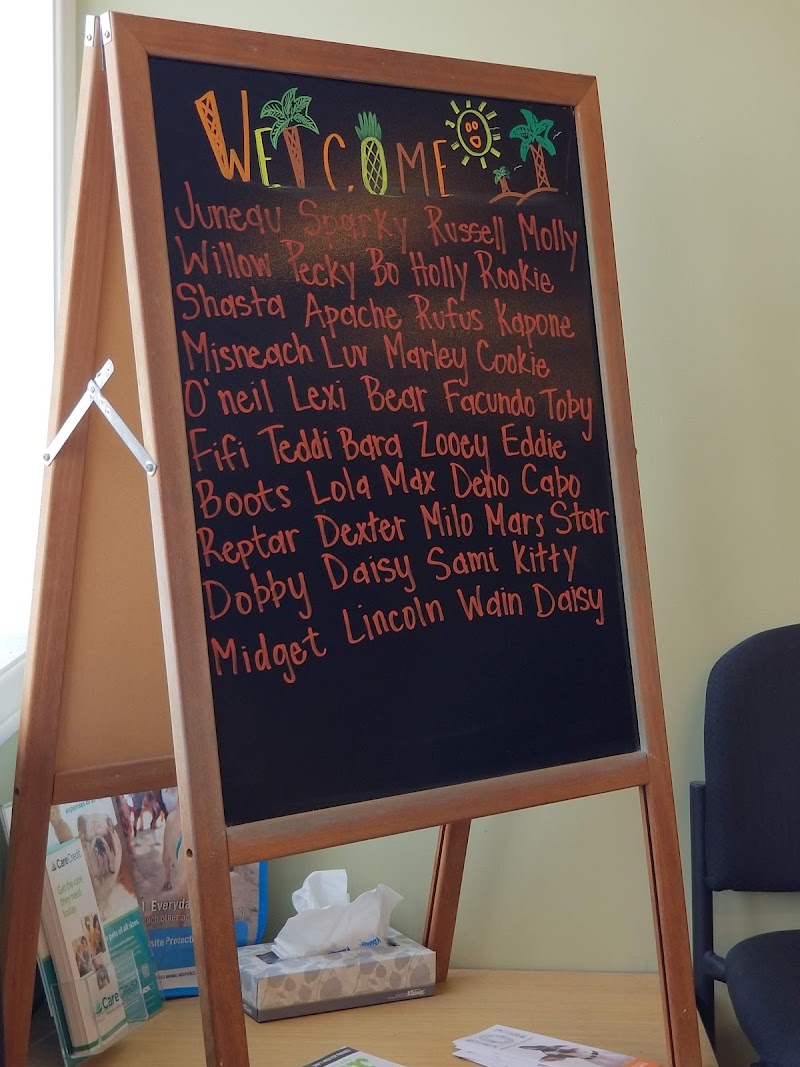 WELCOME
Juneau Sparky Russell Molly
Willow Pecky Bo Holly Rookie
Shasta Apache Rufus Kapone
Misneach Luv Marley Cookie
O'neil Lexi Bear Facundo Toby
Fifi Teddi Bara Zooey Eddie
Boots Lola Max Deno Cabo
Reptar Dexter Milo Mars Star
Dobby Daisy Sami Kitty
Midget Lincoln Wain Daisy
CareCredit
Get the care
they need
today.
pets of all sizes.
CareCredit
Everyday
each other and
site Protection
Kleenex